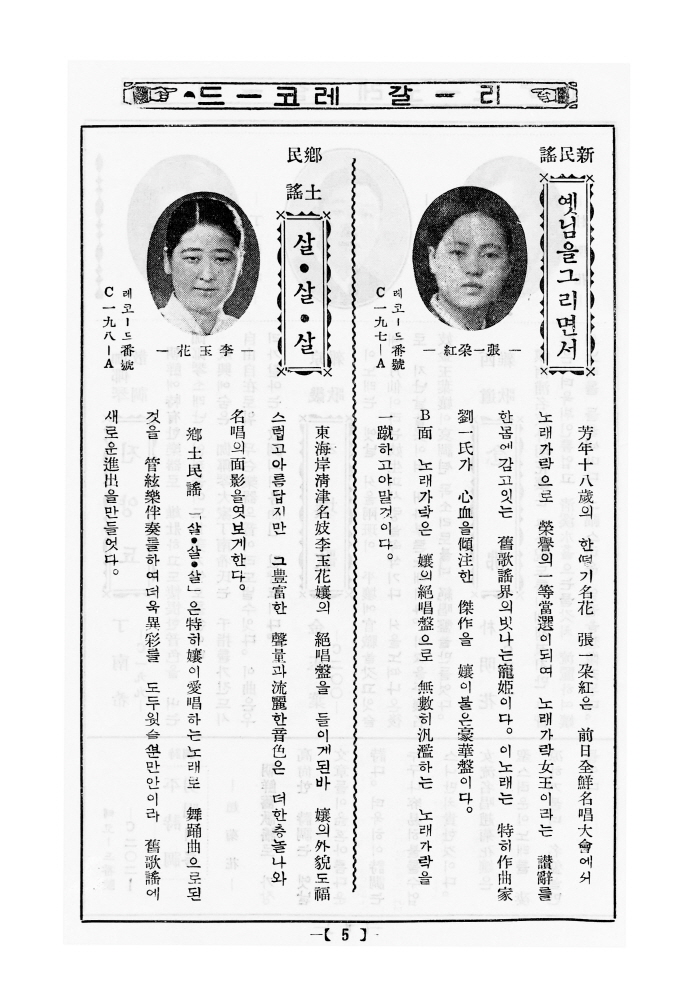 리ー갈 레코ー드
新民謠
옛님을그리면서
—張一朶紅—
레코ー드番號
C一九七—A
芳年十八歲의 한떨기名花 張一朶紅은 前日全鮮名唱大會에서
노래가락으로 榮譽의一等當選이되여 노래가락女王이라는 讃辭를
한몸에감고잇는 舊歌謠界의빗나는寵姬이다。이노래는 特히作曲家
劉一氏가 心血을傾注한 傑作을 孃이불은豪華盤이다。
B面 노래가락은 孃의絕唱盤으로 無數히汎濫하는 노래가락을
一蹴하고야말것이다。
鄕土
民謠
살•살•살
—李玉花—
레코ー드番號
C一九八—A
東海岸淸津名妓李玉花孃의 絕唱盤을 들이게된바 孃의外貌도福
스럽고아름답지만 그豊富한 聲量과流麗한音色은 더한층놀나와
名唱의面影을엿보게한다。
鄕土民謠「살•살•살」은特히孃이愛唱하는노래로 舞踊曲으로된
것을 管絃樂伴奏를하여더욱異彩를 도두윗슬뿐만안이라 舊歌謠에
새로운進出을만들엇다。
—【 5 】—